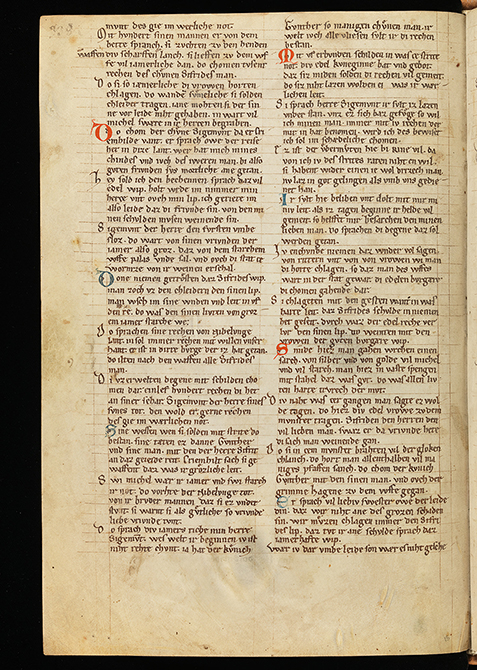 mvnt des gie im werliche not.
Mit hundert sinen mannen er von dem
bette spranch. si zvhten zv den henden
div scharffen lanch. si lieffen zv dem wf
fe vil iamerliche dan. do chomen tvsent
rechen des chvnen Sifrides man.
Do si so iamerliche di vrowen horten
chlagen. do wande svmeliche si solden
chleider tragen. iane mohten si der sin
ne vor leide niht gehaben. in wart vil
michel swære in ir herzen begraben.
Do chom der chvnc Sigemvnt da er Cri
emhilde vant. er sprach owe der reise
her in dize lant. wer hat mich mines
chindes vnd ivch des iweren man. bi also
gvten frivnden svs mortlich ane getan.
Hey sold ich den bechennen. sprach daz vil
edel wip. holt wrde im nimmer min
herze vnt ovch min lip. ich getæte im
also leide daz di frivnde sin. von den mi
nen schvlden mvsen weinende sin.
Sigemvnt der herre den fvrsten vmbe
sloz. do wart von sinen frivnden der
iamer also groz. daz von dem starchen
wffe palas vnde sal. vnd ovch di stat ze
wormze von ir weinen erschal.
Done niemen getrosten daz Sifrides wip.
man zoch vz den chleidern den sinen lip.
man wsch im sine wnden vnd leit in vf
den re. do was den sinen livten von groz
em iamer starche we.
Do sprachen sine rechen von nibelvnge
lant. in sol immer rechen mit willen vnser
hant. er ist in dirre bvrge der iz hat getan.
do ilten nach den waffen alle Sifrides
man.
Di vz er welten degene mit schilden cho
men dar. einlef hvndert rechen di het
an siner schar. Sigemvnt der herre sines
svnes tot. den wold er gerne rechen
des gie im werlichen not.
Sine wessen wen si solden mit strite do
bestan. sine tæten ez danne Gvnther
vnd sine man. mit den der herre Sifrit
an daz geiæide reit. Criemhilt sach si ge
waffent daz was ir grozliche leit.
Swi michel wær ir iamer vnd swi starch
ir not. do vorhte si der Nibelvnge tot.
von ir brvder mannen daz si ez vnder
stvnt. si warnt si als gvtliche so frivnde
liebe frivnde tvnt.
Do sprach div iamers riche min herre
Sigemvnt. wes welt ir beginnen iv ist
niht rehte chvnt. ia hat der kvnich
Gvnther so manigen chvnen man. ir
welt ivch alle vliesen svlt ir di rechen
bestan.
Mit vf erbvnden schilden in was ze strite
not. div edel kvneginne bat vnd gebot.
daz siz miden solden di rechen vil gemeit.
do siz niht lazen wolden ez was ir wær
lichen leit.
Si sprach herre Sigemvnt ir svlt iz lazen
vnder stan. vnz ez sich baz gefvge so wil
ich minen man. immer mit iv rechen der
mir in hat benomen. wird ich des bewiset
ich sol im schædeliche chomen.
Ez ist der vbermvten hie bi rine vil. da
von ich iv des strites raten niht en wil.
si habent wider einen ie wol drizech man.
nv laz in got gelingen als vmb vns gedie
net han.
Ir svlt hie beliben vnt dolt mit mir di
niv leit. als iz tagen beginne ir helde vil
gemeit. so helfet mir besarchen den minen
lieben man. do sprachen di degene daz sol
werden getan.
Iv enchvnde niemen daz wnder vol sagen.
von rittern vnt von von vrowen wi man
di horte chlagen. so daz man des wffes
wart in der stat gewar. di edelen bvrgære
di chomen gahende dar.
Si chlageten mit den gesten wande in was
harte leit. daz Sifrides schvlde in niemen
het geseit. dvrch waz der edel reche ver
lor den sinen lip. do weinten mit den
vrowen der gvten bvrgære wip.
Smide hiez man gahen wrchen einen
sarch. von silber vnd von golde vil michel
vnd vil starch. man hiez in vaste spengen
mit stahel daz was gvt. do was allen liv
ten harte trvrech der mvt.
Div naht was zer gangen man sagte ez wol
de tagen. do hiez div edel vrowe zv dem
mvnster tragen. Sifriden den herren den
vil lieben man. swaz er da vrivnde het
di sach man weinende gan.
Do si in zem mvnster brahten vil der gloken
chlanch. do hort man allenthalben vil ma
niges pfaffen sanch. do chom der kvnich
Gvnther mit den sinen man. vnd ovch der
grimme hagene zv dem wffe gegan.
Er sprach vil liebiv swester owe der leide
din. daz wir niht ane des grozen schaden
sin. wir mvzen chlagen immer den Sifri
des lip. daz tvt ir ane schvlde sprach daz
iamerhafte wip.
Wær iv dar vmbe leide son wær es niht gesche